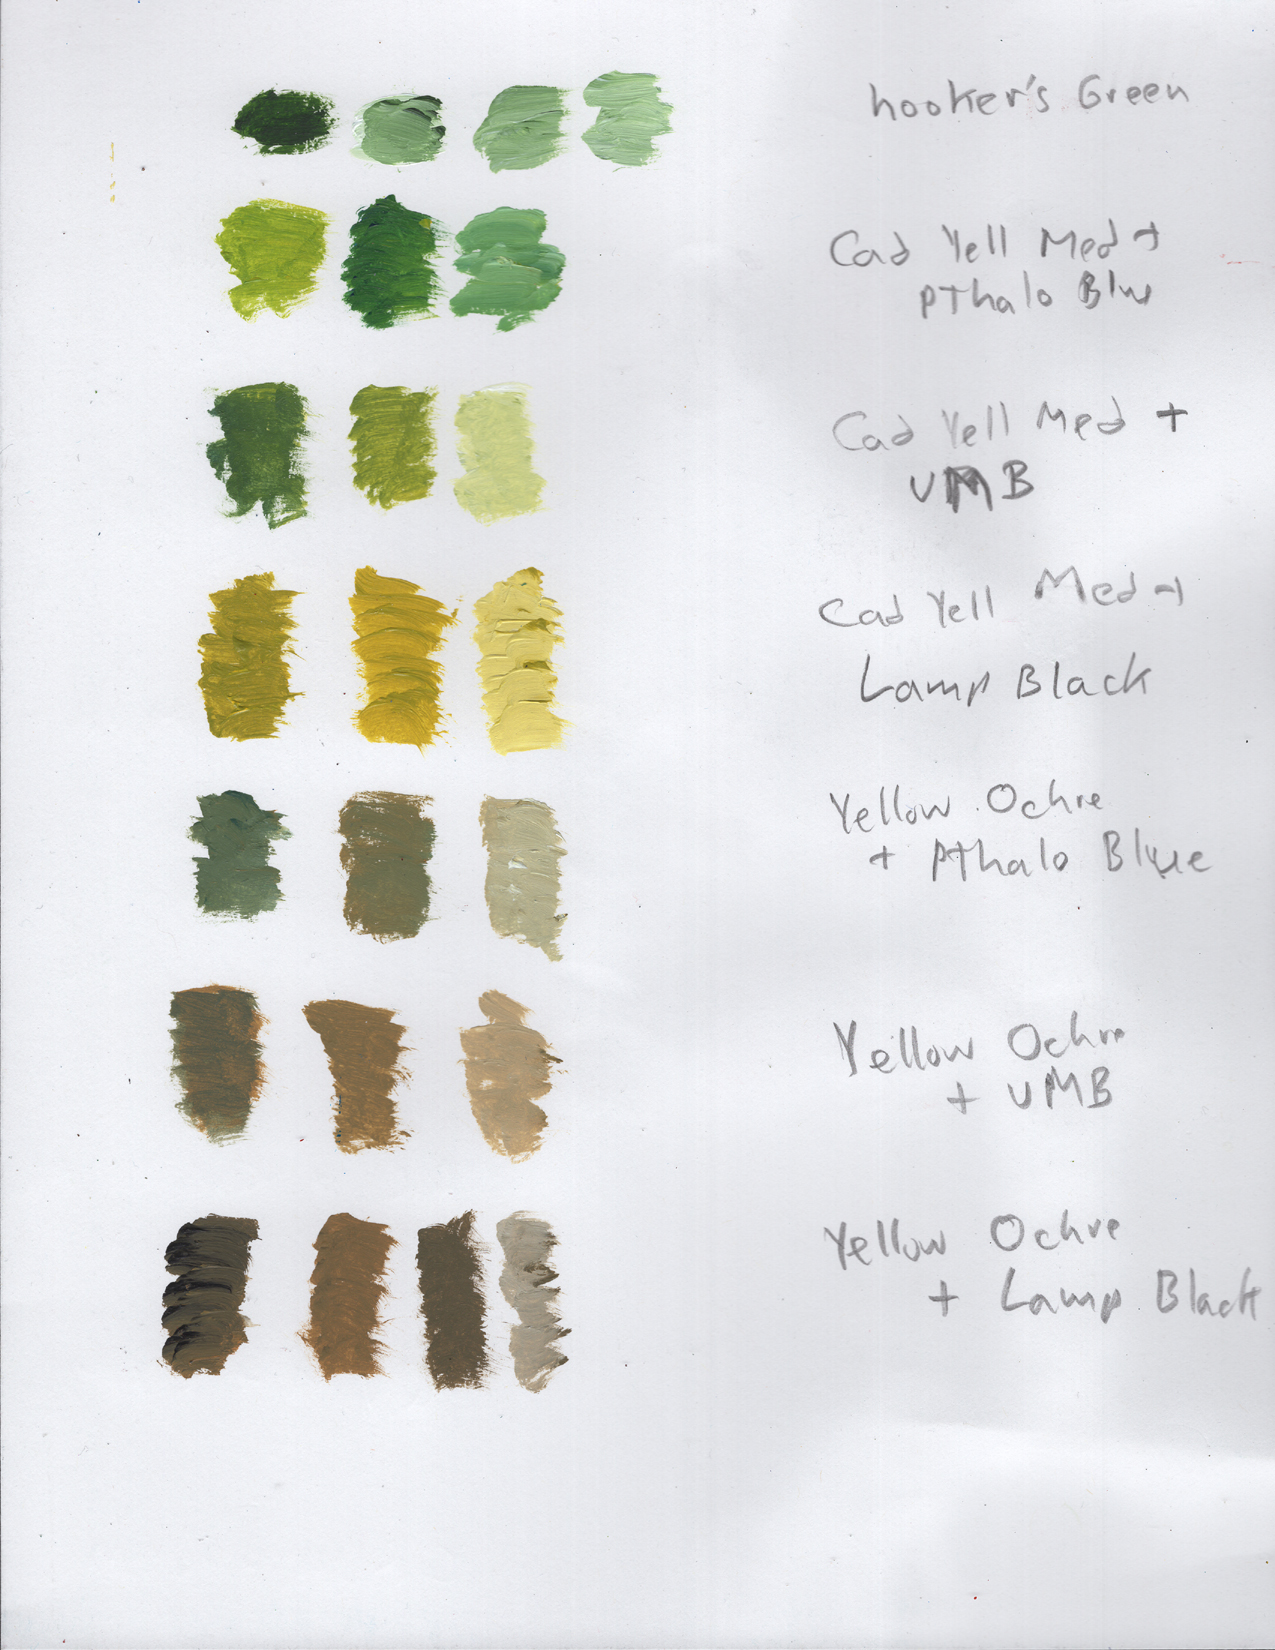 hooker's Green
Cad Yell Med +
pthalo Blue
Cad Yell Med +
UMB
Cad Yell Med +
Lamp Black
Yellow Ochre
+ pthalo Blue
Yellow Ochre
+ UMB
Yellow Ochre
+ Lamp Black